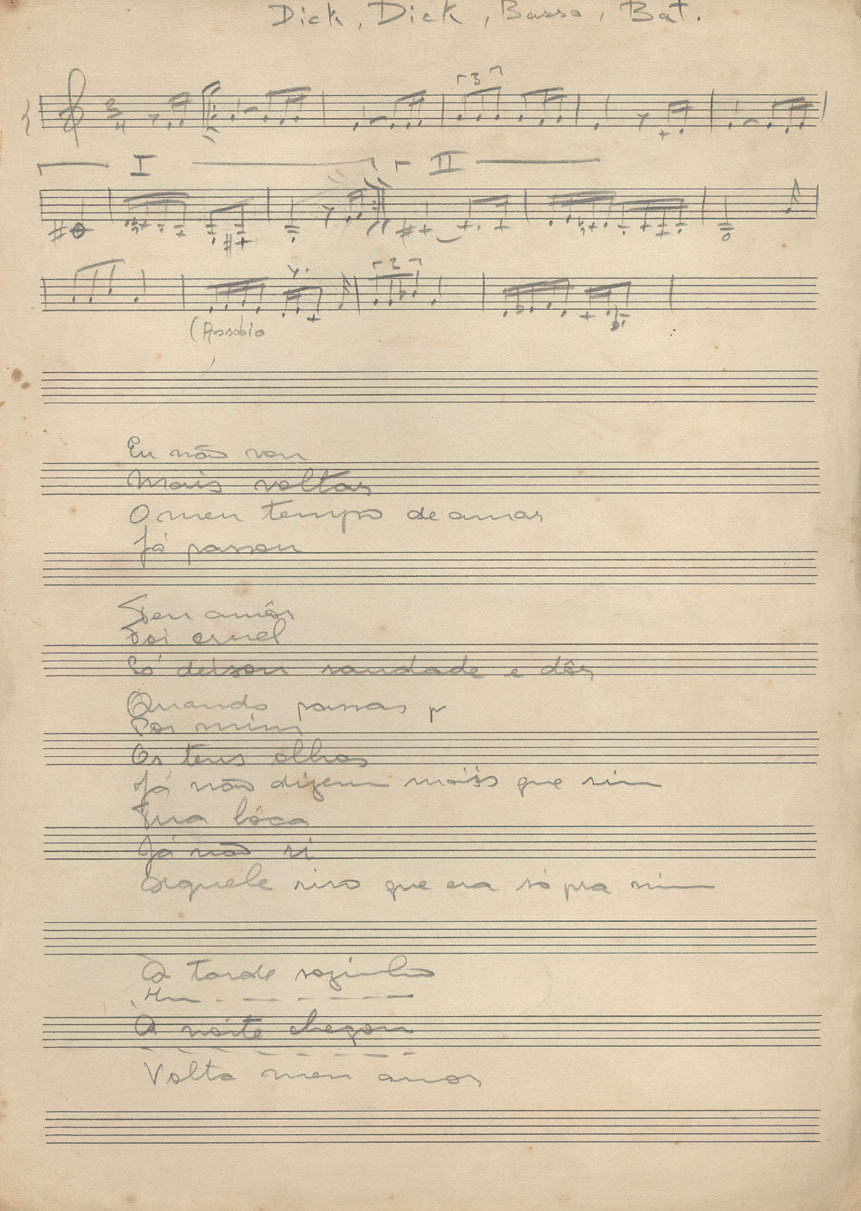 Dick, Dick, Basso, Bat.
3
3/4
I
II
3
(Assobio
Eu não vou
Mais voltar
O meu tempo de amar
Já passou
Teu amôr
Foi cruel
Só deixou saudade e dôr
Quando passas p
Por mim
Os teus olhos
Já não dizem mais que sim
Tua bôca
Já não ri
Aquele riso que era só pra mim
A tarde sozinho
Hu
A noite chegou
Volta meu amor